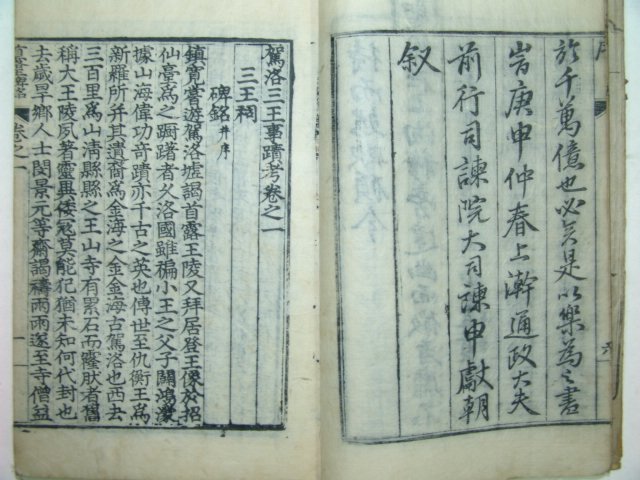 於千萬億也必矣是以樂爲之書
時庚申仲春上澣通政大夫
前行司諫院大司諫申獻朝
叙
駕洛三王事蹟考卷之一
三王祠
碑銘 并序
鎮寬嘗遊駕洛墟謁首露王陵又拜居登王像於招
仙臺爲之踟躇者久洛國雖褊小王之父子闢鴻濛
據山海偉功奇蹟亦千古之英也傳世至仇衡王爲
新羅所并其遺裔爲金海之金金海古駕洛也西去
三百里爲山淸縣縣之王山寺有累石而隆然者舊
稱大王陵夙著靈異倭冦莫能犯猶未知何代封也
去歲旱鄕人士閔景元等齋謁禱雨雨遂至寺僧益
卷之一
一